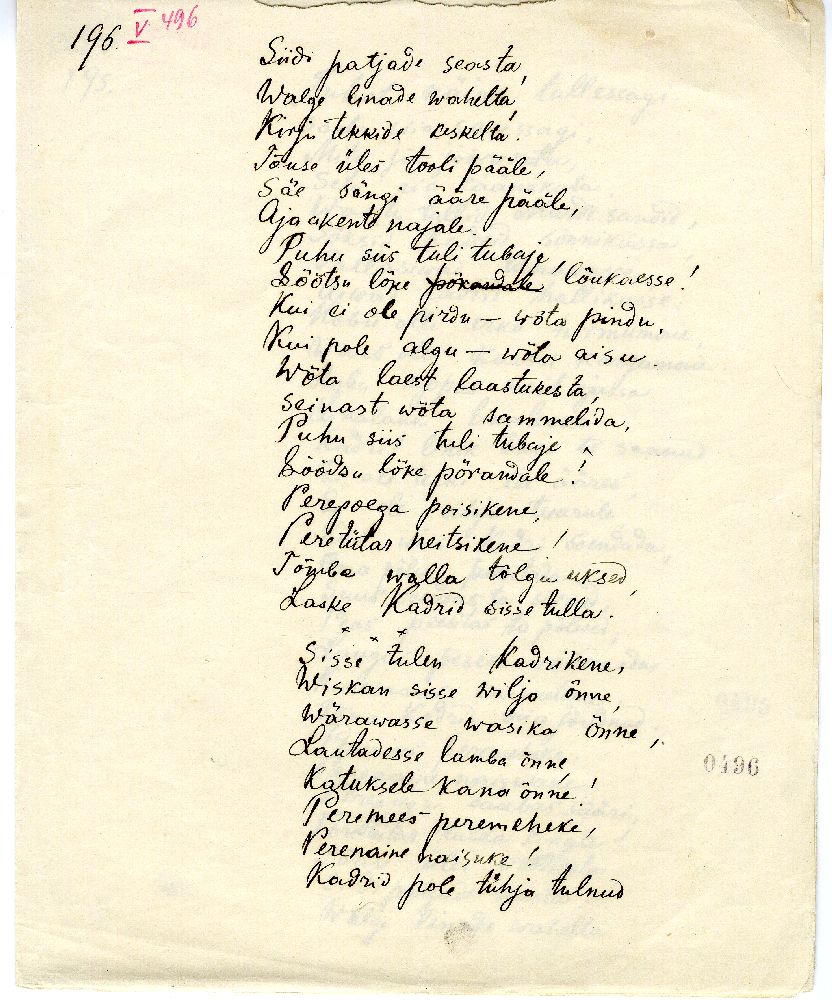 196. V 496
Siidi patjade seasta,
Walge linade wahelta,
Kirju tekkide keskelta.
Tõuse üles tooli pääle,
Säe sängi ääre pääle,
Aja akent najale.
Puhu siis tuli tubaje,
Söötsu lõke põrandale lõukaesse!
Kui ei ole pirdu — wõta pindu,
Kui pole algu — wõta aisu.
Wõta laest laastukesta,
Seinast wõta sammelida,
Puhu siis tuli tubaje,
Söödsu lõke põrandale!
Perepoega poisikene,
Peretütar neitsikene!
Tõmba walla tõlgu uksed,
Laske Kadrid sisse tulla.
× × ×
Sisse tulen Kadrikene,
Wiskan sisse wilja õnne,
Wärawasse wasika õnne,
Lautadesse lamba õnne,
Katuksele kana õnne!
Peremees peremeheke,
Perenaine naisuke!
Kadrid pole tühja tulnud
0496